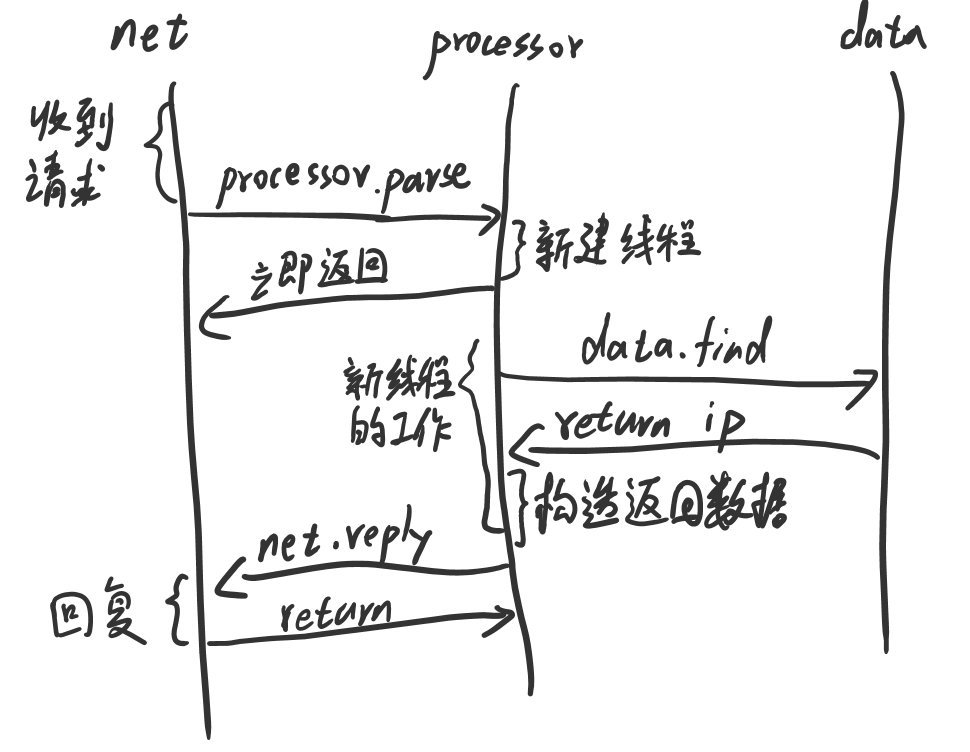 net
processor
data
收到
请求
processor.parse
新建线程
立即返回
data.find
新线程
的工作
return ip
构造返回数据
net.reply
回复
return